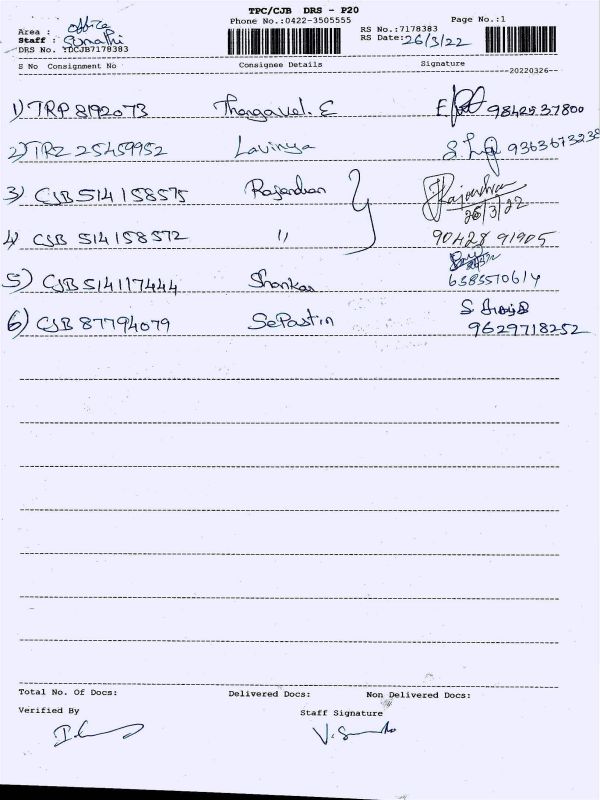 TPC/CJB DRS - P20
Phone No.:0422-3505555 Page No.:1
Area : office RS No.:7178383
Staff : RS Date:26/3/22
DRS No. :DCJB7178383
S No Consignment No Consignee Details Signature
20220326
1) TRP 8192073 Thangavel. E 98425 37800
2) TRZ 25459952 Lavinya 9363673238
3) CJB 514158575 Rajendran Rajendran
26/3/22
4) CJB 514158572 " 90428 91905
5) CJB 514117444 Shankar 6385570614
6) CJB 87794079 SePastin 9629718252
Total No. Of Docs: Delivered Docs: Non Delivered Docs:
Verified By Staff Signature